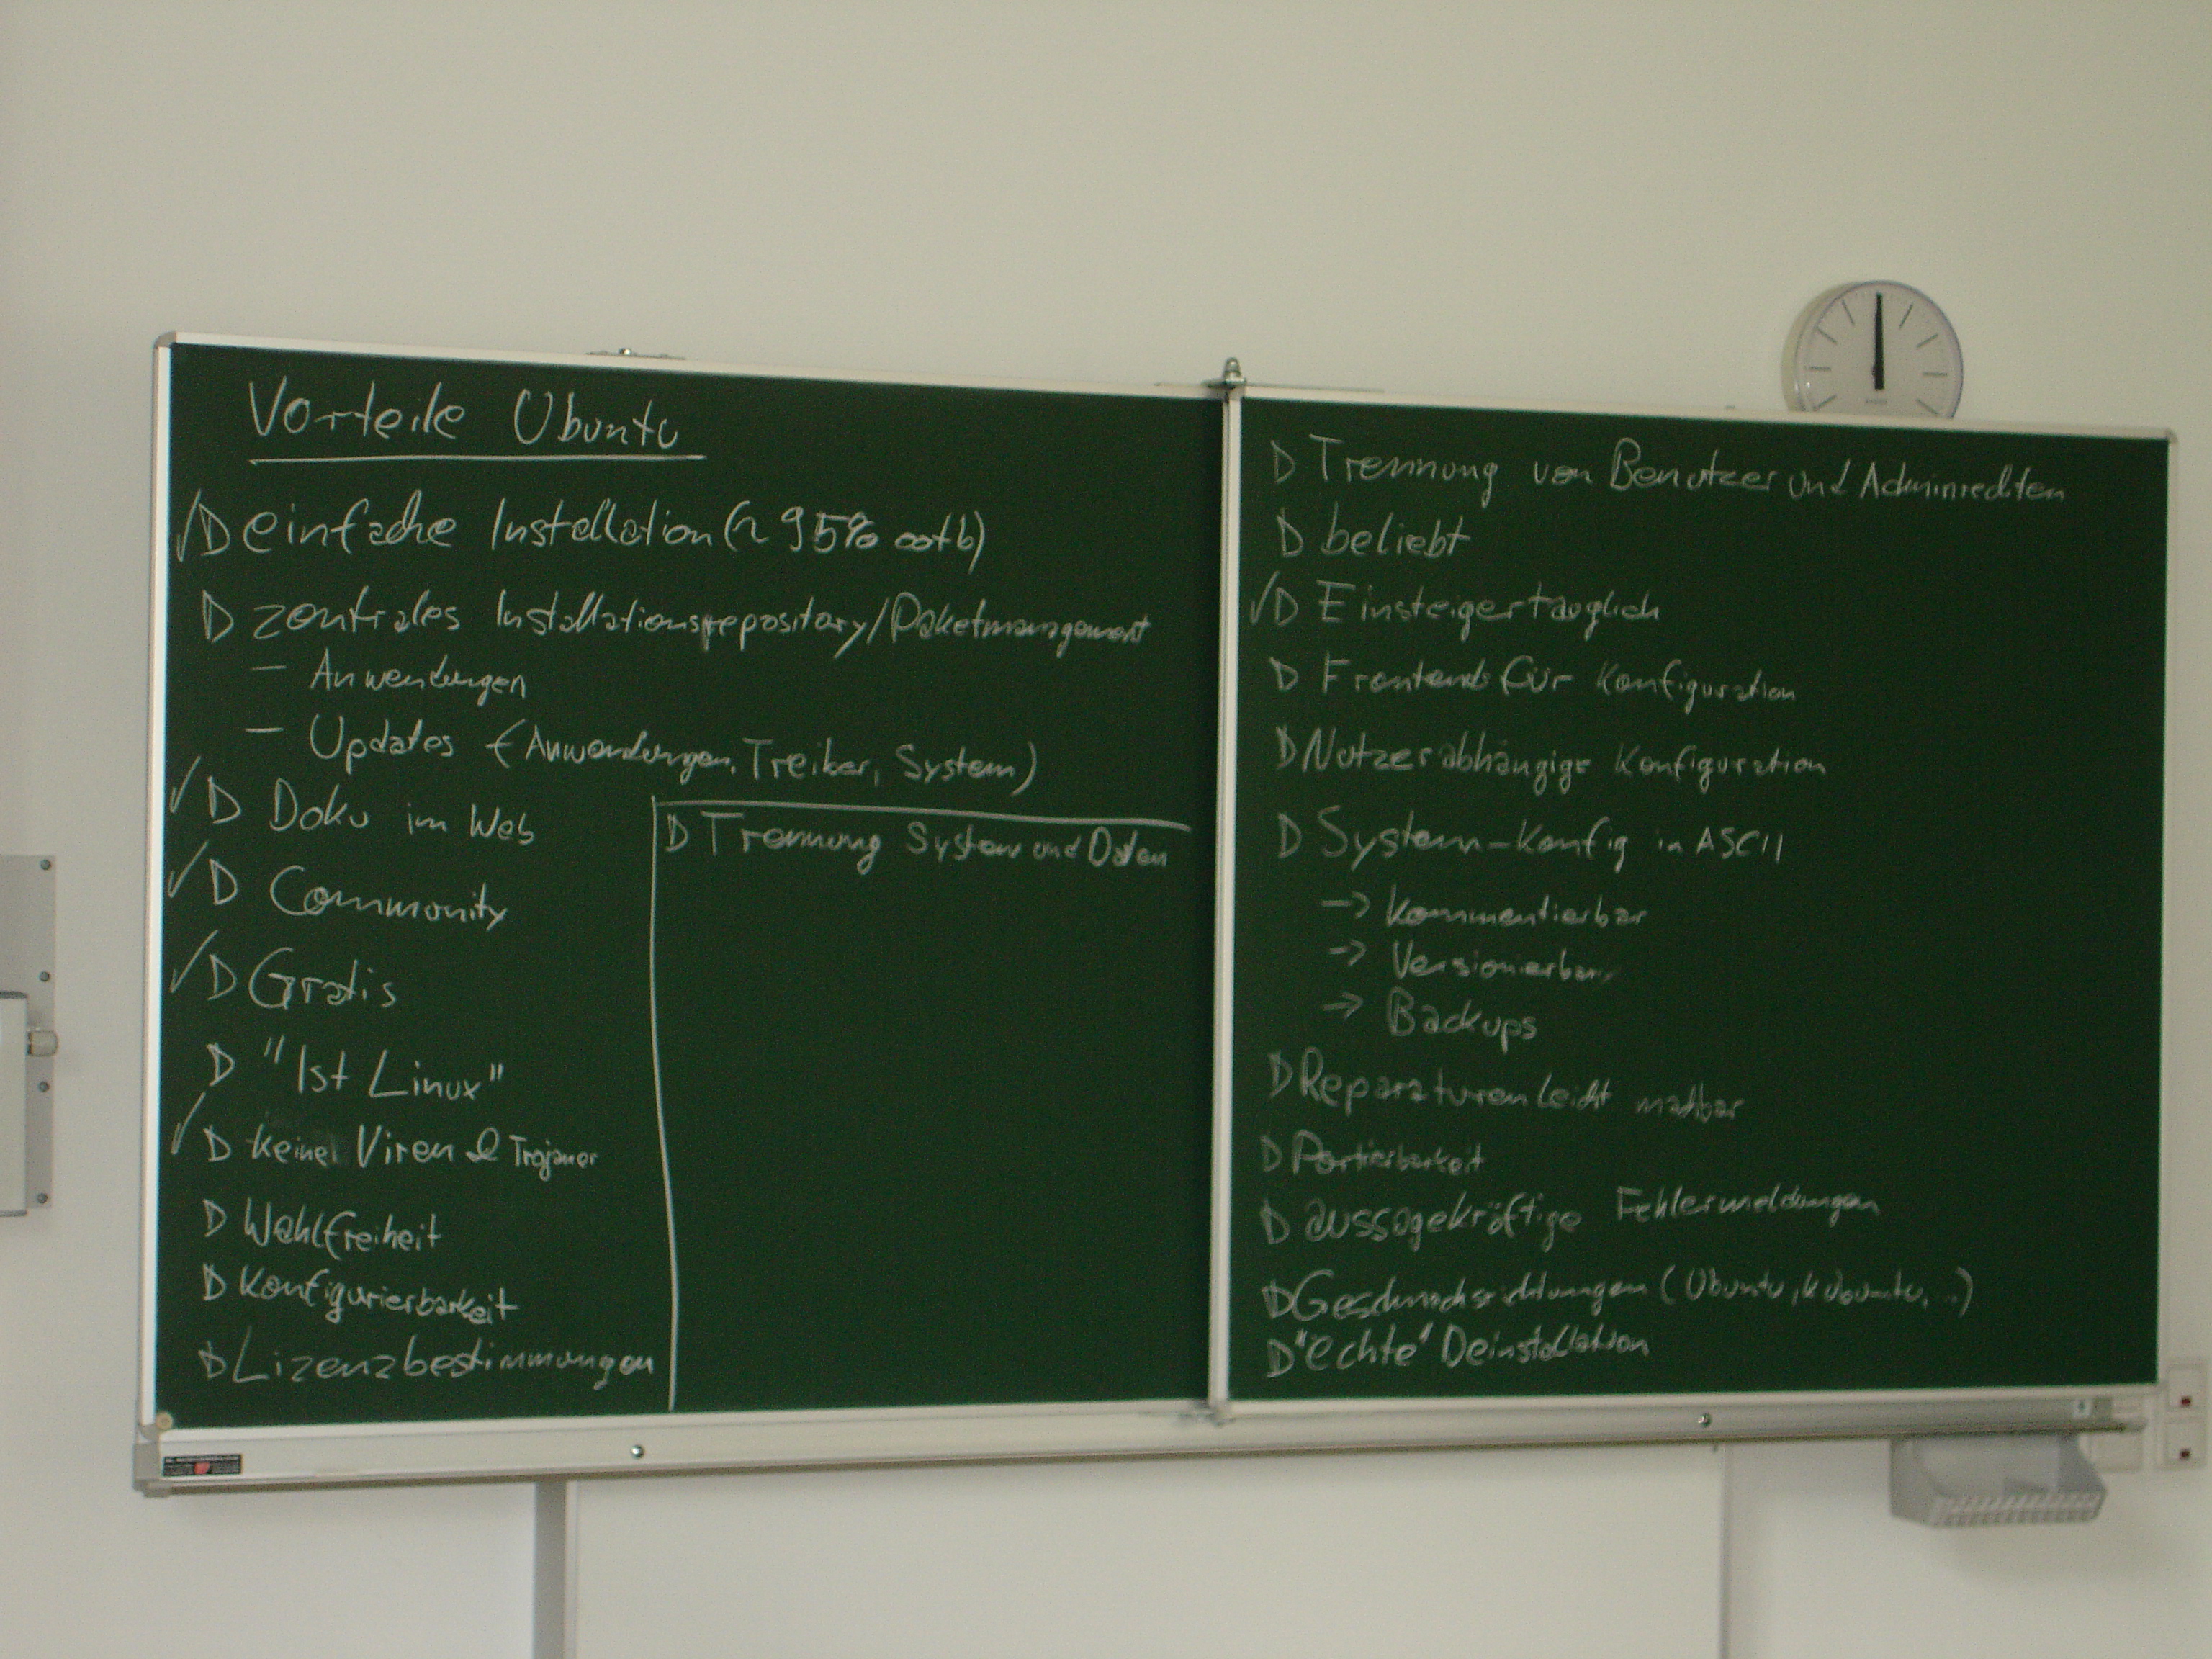 Vorteile Ubuntu
✓ D einfache Installation (~ 95% ootb)
D zentrales Installationsrepository/Paketmanagement
- Anwendungen
- Updates (Anwendungen, Treiber, System)
✓ D Doku im Web
✓ D Community
✓ D Gratis
D "Ist Linux"
✓ D keine Viren & Trojaner
D Wahlfreiheit
D Konfigurierbarkeit
D Lizenzbestimmungen
D Trennung System und Daten
D Trennung von Benutzer und Adminrechten
D beliebt
✓ D Einsteigertauglich
D Frontends für Konfiguration
D Nutzerabhängige Konfiguration
D System-Konfig in ASCII
-> kommentierbar
-> Versionierbar
-> Backups
D Reparaturen leicht machbar
D Portierbarkeit
D aussagekräftige Fehlermeldungen
D Geschmacksrichtungen (Ubuntu, Kubuntu, ...)
D "echte" Deinstallation